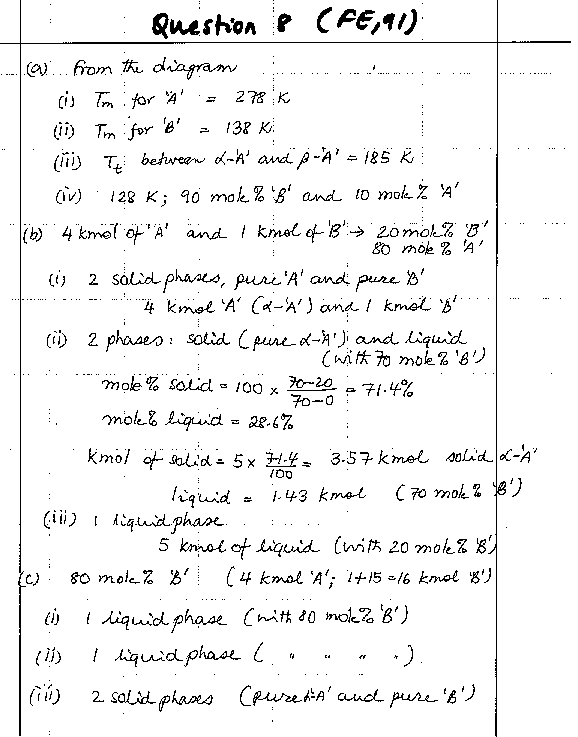 Question 8 (FE,91)
(a) from the diagram
(i) Tm for 'A' = 278 K
(ii) Tm for 'B' = 138 K
(iii) Tt between α-'A' and β-'A' = 185 K
(iv) 128 K; 90 mole % 'B' and 10 mole % 'A'
(b) 4 kmol of 'A' and 1 kmol of 'B' → 20 mole % 'B'
80 mole % 'A'
(i) 2 solid phases, pure 'A' and pure 'B'
4 kmol 'A' (α-'A') and 1 kmol 'B'
(ii) 2 phases: solid (pure α-'A') and liquid
(with 70 mole % 'B')
mole % solid = 100 × (70-20)/(70-0) = 71.4%
mole % liquid = 28.6%
kmol of solid = 5 × 71.4/100 = 3.57 kmol solid α-'A'
liquid = 1.43 kmol (70 mole % 'B')
(iii) 1 liquid phase
5 kmol of liquid (with 20 mole % 'B')
(c) 80 mole % 'B' (4 kmol 'A'; 1+15 = 16 kmol 'B')
(i) 1 liquid phase (with 80 mole % 'B')
(ii) 1 liquid phase ( " " " " ).
(iii) 2 solid phases (pure 'A' and pure 'B')